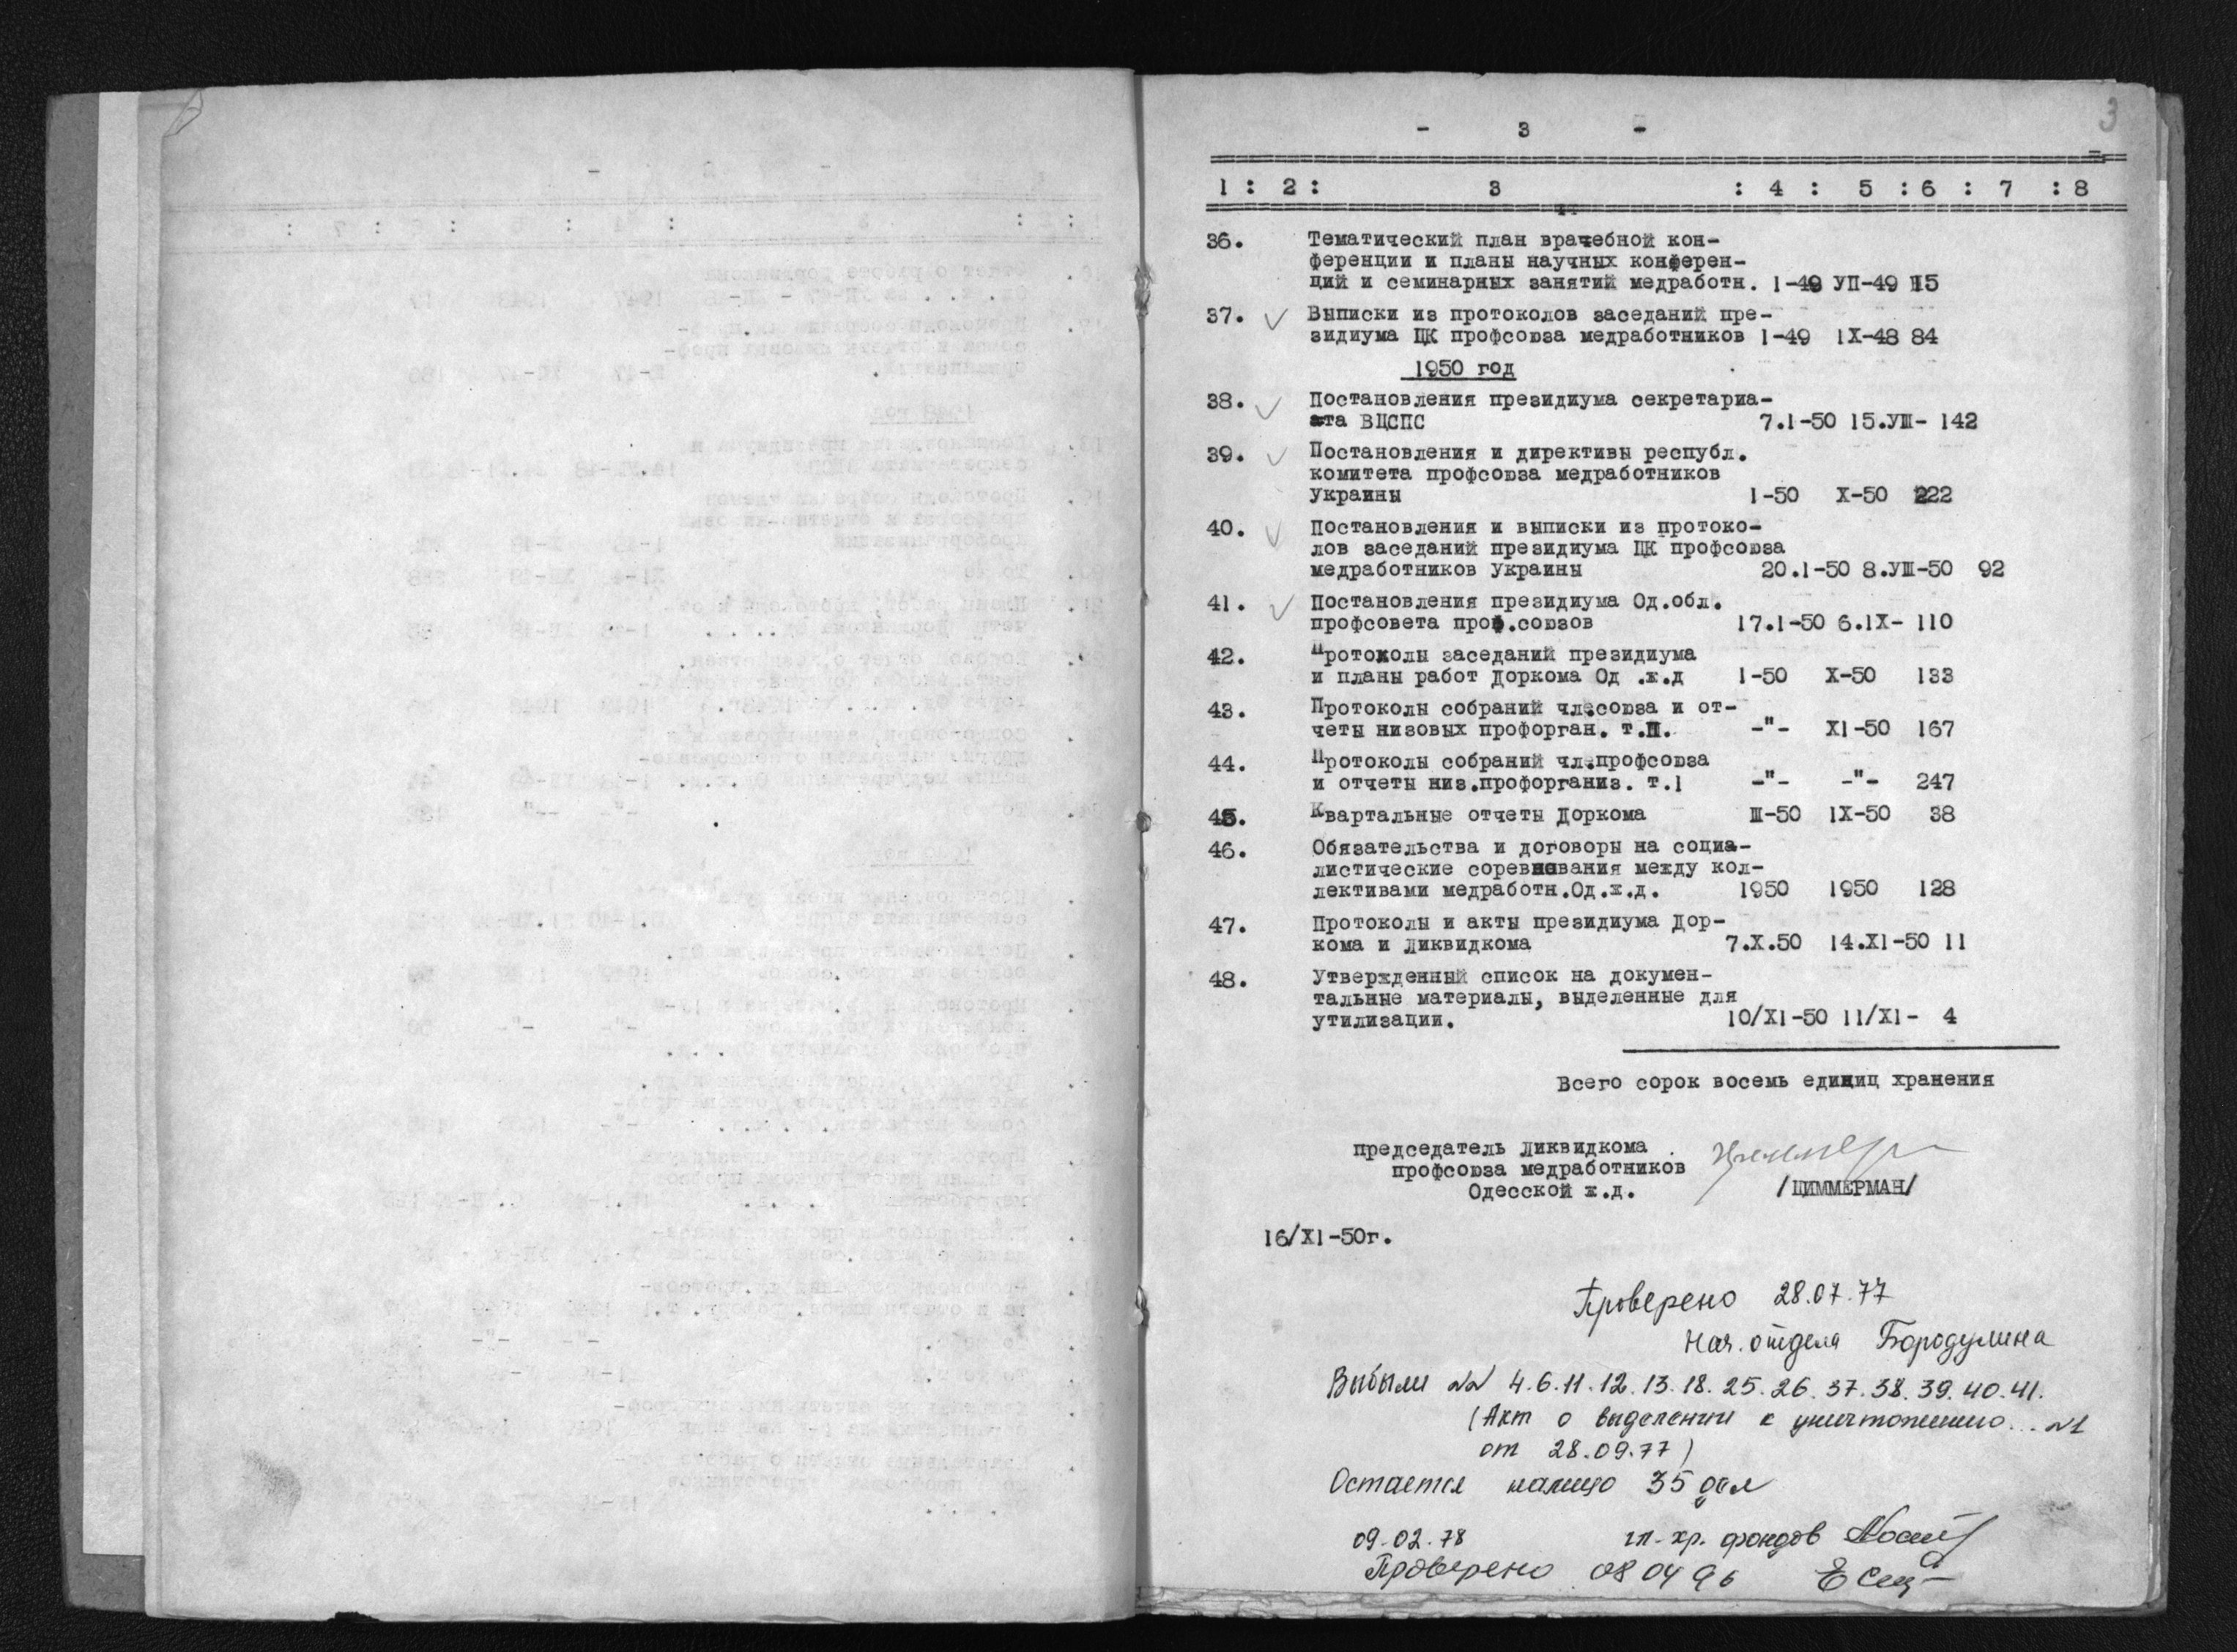 3
- 3 -
1 : 2 : 3 : 4 : 5 : 6 : 7 : 8
36. Тематический план врачебной кон-
ференции и планы научных конферен-
ций и семинарных занятий медработн. 1-49 УП-49 15
37. Выписки из протоколов заседаний пре-
зидиума ЦК профсоюза медработников 1-49 1X-48 84
1950 год
38. Постановления президиума секретариа-
та ВЦСПС 7.1-50 15.УШ- 142
39. Постановления и директивы республ.
комитета профсоюза медработников
Украины 1-50 X-50 222
40. Постановления и выписки из протоко-
лов заседаний президиума ЦК профсоюза
медработников Украины 20.1-50 8.УШ-50 92
41. Постановления президиума Од.обл.
профсовета проф.союзов 17.1-50 6.1X- 110
42. Протоколы заседаний президиума
и планы работ Доркома Од .ж.д 1-50 X-50 133
43. Протоколы собраний чл.союза и от-
четы низовых профорган. т.П. -"- X1-50 167
44. Протоколы собраний чл.профсоюза
и отчеты низ.профорганиз. т.1 -"- -"- 247
45. Квартальные отчеты Доркома Ш-50 1X-50 38
46. Обязательства и договоры на социа-
листические соревнования между кол-
лективами медработн.Од.ж.д. 1950 1950 128
47. Протоколы и акты президиума Дор-
кома и Ликвидкома 7.X.50 14.X1-50 11
48. Утвержденный список на докумен-
тальные материалы, выделенные для
утилизации. 10/X1-50 11/X1- 4
Всего сорок восемь единиц хранения
председатель Ликвидкома
профсоюза медработников
Одесской ж.д. /ЦИММЕРМАН/
16/X1-50г.
Проверено 28.07.77
Нач. отдела Бородулина
Выбыли №№ 4.6.11.12.13.18.25.26.37.38.39.40.41.
(Акт о выделении к уничтожению... №1
от 28.09.77)
Остается налицо 35 дел
09.02.78 гл.хр. фондов
Проверено 08 04 96